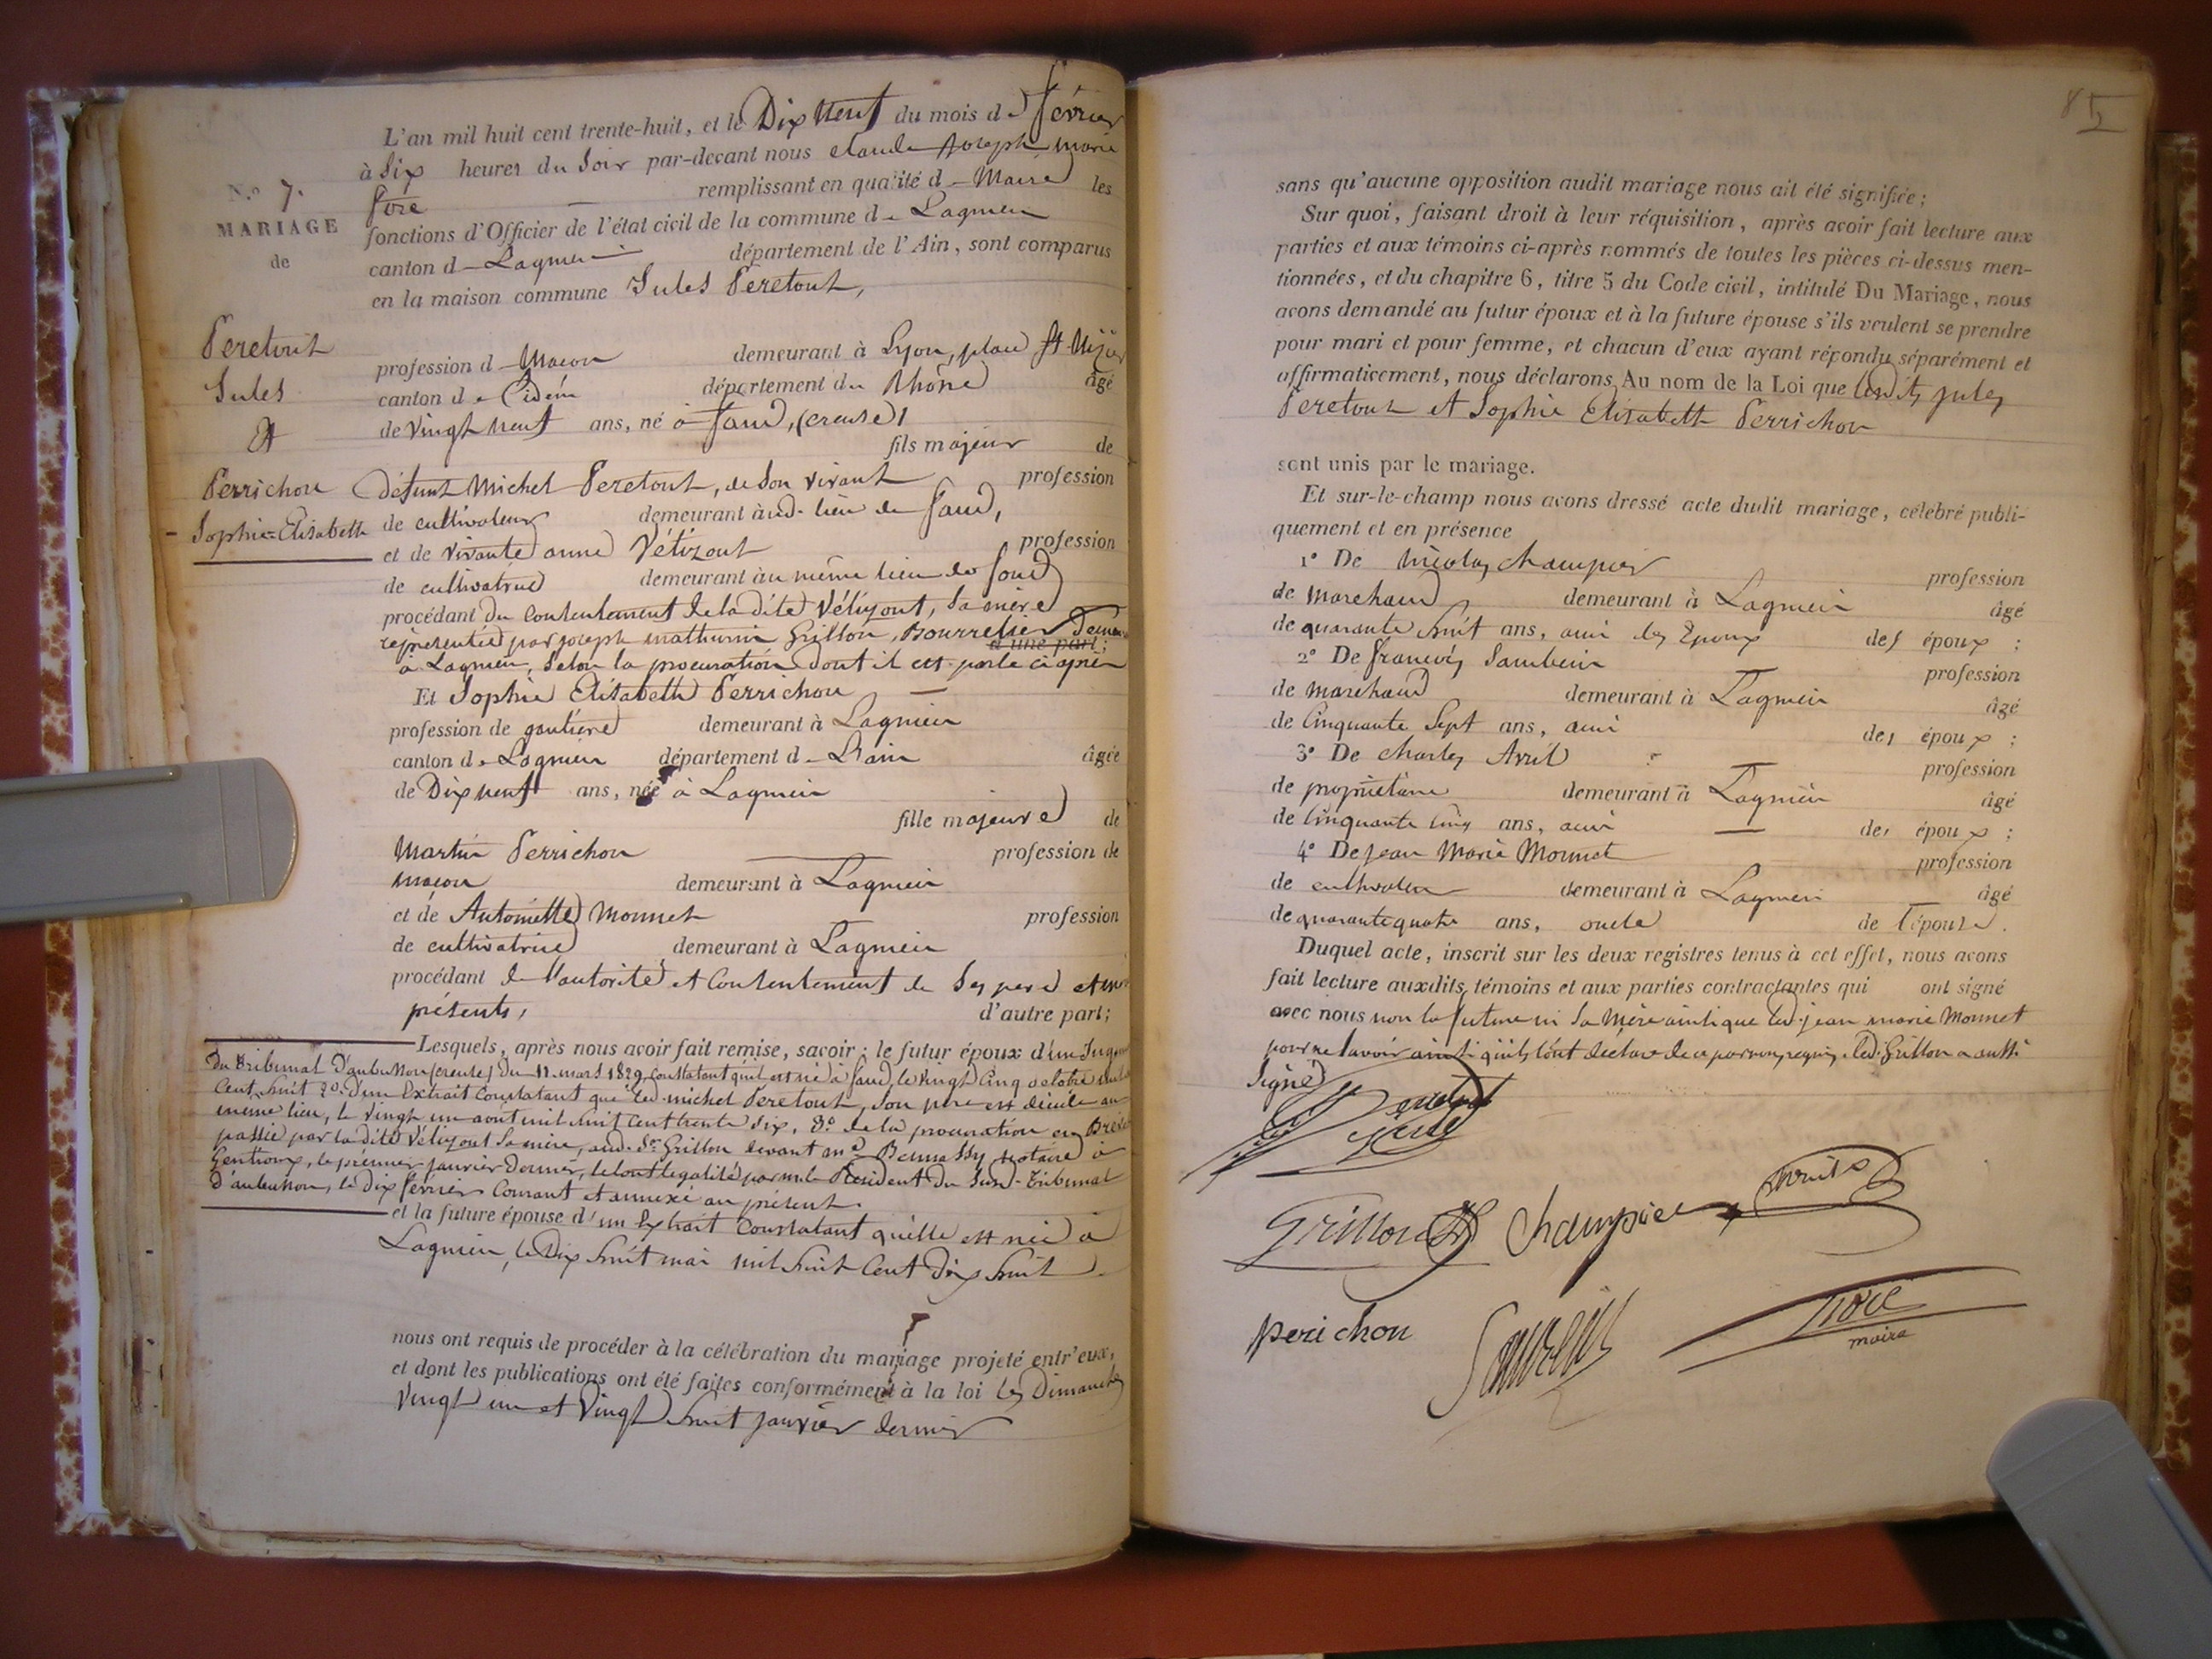 L'an mil huit cent trente-huit, et le Dix neuf du mois de février
à Six heures du Soir par-devant nous claude Joseph marie
foré remplissant en qualité de Maire les
fonctions d'Officier de l'état civil de la commune de Lagnieu
canton de Lagnieu département de l'Ain, sont comparus
en la maison commune Jules Peretout,
N.° 7.
MARIAGE
de
Peretout
Jules
Et
Perrichon
Sophie-Elisabeth
profession de Macon demeurant à Lyon, place St Nizier
canton de idem département du Rhône âgé
de vingt neuf ans, né à faud, (creuse)
fils majeur de
défunt Michel Peretout, de son vivant profession
de cultivateur demeurant aud. lieu de faud,
et de vivante anne Vélizout profession
de cultivatrice demeurant au même lieu de faud
procédant du Consentement de la dite Vélizout, sa mère
représentée par joseph mathurin Grillon, Bourrelier Demeu
d'une part;
à Lagnieu, selon la procuration dont il est parlé ci après
Et Sophie Elisabeth Perrichon
profession de gantière demeurant à Lagnieu
canton de Lagnieu département de L'ain âgée
de Dix neuf ans, née à Lagnieu
fille majeure de
Martin Perrichon profession de
maçon demeurant à Lagnieu
et de Antoinette Monnet profession
de cultivatrice demeurant à Lagnieu
procédant de l'autorité et Consentement de Ses père et
présents, d'autre part;
Lesquels, après nous avoir fait remise, savoir : le futur époux d'un Jugem
du tribunal D'aubusson (creuse) du 11 mars 1829, Constatant qu'il est né à faud, le vingt Cinq octobre mil
Cent huit 2.° d'un Extrait Constatant que led. michel Peretout, son père est décédé au
même lieu, le vingt un août mil huit Cent trente dix, 3.° de la procuration en Brevet
passée par la dite Vélizout sa mère, aud. Sr. Grillon devant me notaire à
Gentioux, le premier janvier Dernier, le tout légalisé par mr le Président du Susd. Tribunal
D'aubusson, le dix février Courant et annexé au présent.
et la future épouse d'un Extrait Constatant qu'elle est née à
Lagnieu, le Dix huit mai mil huit Cent Dix huit.
nous ont requis de procéder à la célébration du mariage projeté entr'eux,
et dont les publications ont été faites conformément à la loi les Dimanches
vingt un et vingt huit janvier dernier
85
sans qu'aucune opposition audit mariage nous ait été signifiée;
Sur quoi, faisant droit à leur réquisition, après avoir fait lecture aux
parties et aux témoins ci-après nommés de toutes les pièces ci-dessus men-
tionnées, et du chapitre 6, titre 5 du Code civil, intitulé Du Mariage, nous
avons demandé au futur époux et à la future épouse s'ils veulent se prendre
pour mari et pour femme, et chacun d'eux ayant répondu séparément et
affirmativement, nous déclarons Au nom de la Loi que lesdits jules
Peretout et Sophie Elisabeth Perrichon
sont unis par le mariage.
Et sur-le-champ nous avons dressé acte dudit mariage, célébré publi-
quement et en présence
1° De nicolas champier profession
de marchand demeurant à Lagnieu âgé
de quarante huit ans, ami des Epoux des époux ;
2° De françois Sambuin profession
de marchand demeurant à Lagnieu âgé
de Cinquante Sept ans, ami des époux ;
3° De charles Avril profession
de propriétaire demeurant à Lagnieu âgé
de Cinquante Cinq ans, ami des époux ;
4° De jean Marie Monnet profession
de cultivateur demeurant à Lagnieu âgé
de quarante quatre ans, oncle de l'épouse.
Duquel acte, inscrit sur les deux registres tenus à cet effet, nous avons
fait lecture auxdits témoins et aux parties contractantes qui ont signé
avec nous non la future ni sa mère ainsi que led. jean marie Monnet
pour ne savoir ainsi qu'ils l'ont déclaré de ce par nous requis, led. Grillon a aussi
Signé
Grillon Champier
perichon
foré
maire